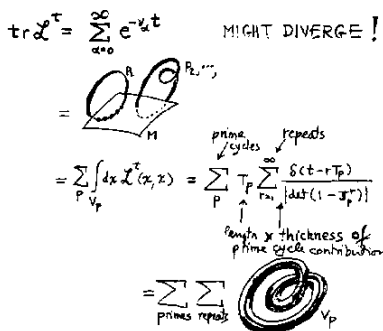 tr 𝓛ᵗ = ∑_{α=0}^{∞} e^{-ν_α t} MIGHT DIVERGE!
= P₁ P₂, ...,
M
prime cycles repeats
= ∑_P ∫_{V_P} dx 𝓛ᵗ(x,x) = ∑_P T_P ∑_{r=1}^{∞} δ(t-rT_P) / |det(1-J_P^r)|
length x thickness of
prime cycle contribution
= ∑ ∑ V_P
primes repeats